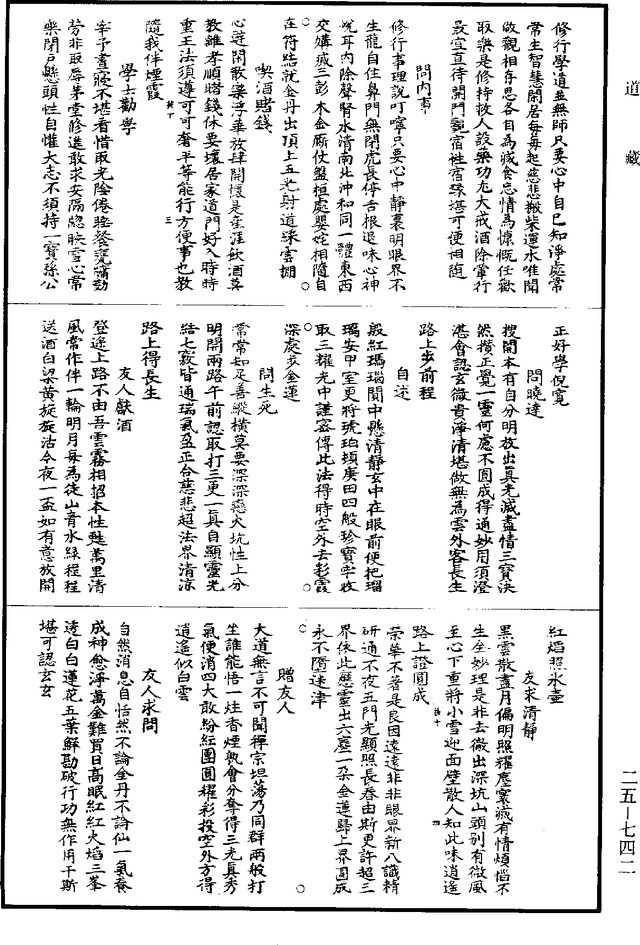 道藏
修行學道並無師只要心中自己知淨處常
常生智慧閑居每每起慈悲搬柴運水唯開
做觀相存思各自為減食忘情為慷慨任歡
取樂是修持救人設藥功尤大戒酒除葷行
最宜直待開門親宿性宿緣堪可便相隨
問內事
修行事理說叮嚀只要心中靜裏明眼界不
生龍自住鼻門無閉虎長停舌根退味心神
悅耳內除聲腎水清南北沖和同一體東西
交媾滅三彭木金廝伏盤桓處嬰姹相隨自
在行結就金丹出頂上五光射道綵雲捌
喫酒賭錢
心莚閑散樂浮華放肆開懷是生涯飲酒莫
教離孝順賭錢休要壞居家道門好入時時
重王法須遵可可奢平等能行方便事也教
隨我伴煙霞
學士勸學
宰予晝寢不堪看惜取光陰倦睡餐甕牖勤
勞非取辱茅堂修進敢求安隔牕映雪心常
樂閉戶懸頭性自惟大志不須持一寶孫公
正好學倪寬
問曉達
搜開本有自分明放出真光滅盡情三寶決
然攢正覺一靈何處不圓成得通妙用須澄
湛會認玄微貴淨清堪做無為雲外客長生
路上步前程
自述
殷紅瑪瑙閣中懸清靜玄中在眼前便把瑠
璃安甲室更將琥珀頓庚田四般珍寶牢收
取三耀光中謹密傳此法得時空外去彩霞
深處步金蓮
問生死
常常知足善縱橫莫要深深惡火坑性上分
明開兩路午前認取打三更一真自顯靈光
結七竅皆通瑞氣盈正合慈悲超法界清涼
路上得長生
友人獻酒
登途上路不由吾雲霧相招本性甦萬里清
風常作伴一輪明月每為徒山青水綠程程
送酒白梁黃旋旋沽今夜一盃如有意放開
紅焰照氷壺
友求清靜
黑雲散盡月偏明照耀塵寰滅有情煩惱不
生全妙理是非去徹出深坑山頭別有微風
至心下重將小雪迎面壁散人知此味逍遙
路上證圓成
榮華不著是良因遠遠非非眼界新八識精
研通不夜五門光顯照長春由斯更許超三
界依此應靈出六塵一朵金蓮歸上界圓成
永不墮迷津
贈友人
大道無言不可聞禪宗坦蕩乃同群兩般打
坐誰能悟一炷香煙孰會分奪得三光真秀
氣便消四大敢紛紜團圓耀彩投空外方得
逍遙似白雲
友人求問
自然消息自恬然不論金丹不論仙一氣養
成神愈淨萬金難買日高眠紅紅火焰三峯
透白白蓮花五葉鮮勘破行功無作用千斯
堪可認玄玄
二五—七四二